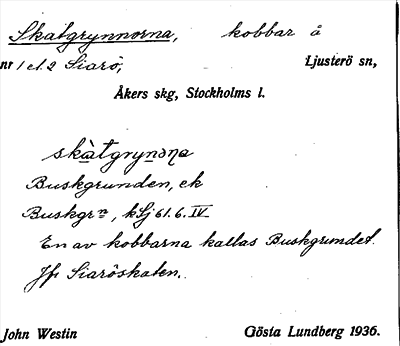 Skatgrynnorna, kobbar å
nr 1 el. 2 Siarö, Ljusterö sn,
Åkers skg, Stockholms l.
skàtgrynɔṇa
Buskgrunden, ek
Buskgrn, kSj 61.6.IV
En av kobbarna kallas Buskgrundet.
Jfr Siaröskaten.
John Westin Gösta Lundberg 1936.